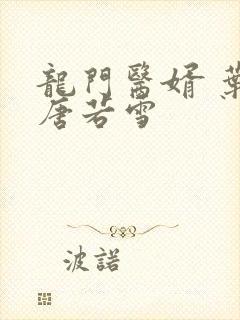 龍門醫婿 葉
唐若雪
波諾